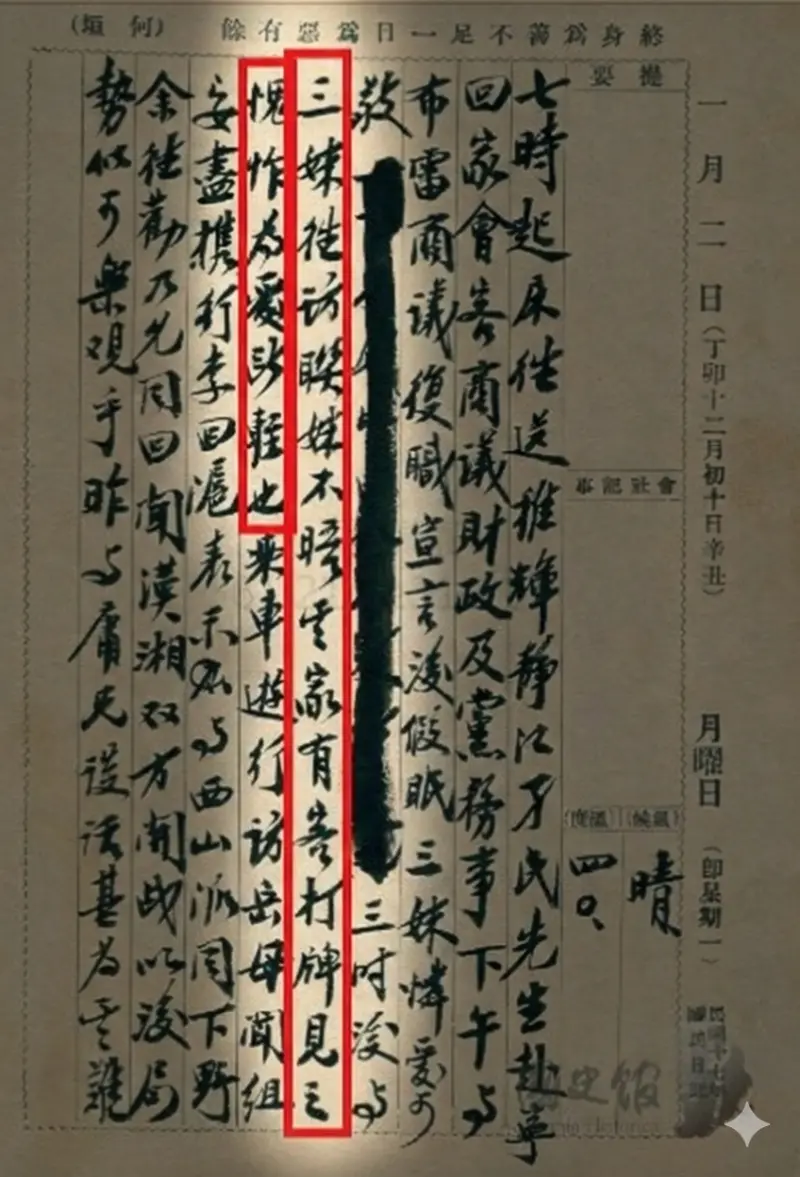 終身爲善不足一日爲惡有餘
(何垣)
一月二日(丁卯十二月初十日辛丑)
月曜日
(卽星期一)
提要
社會記事
(氣候)(溫度)
晴
四〇、
七時起床往送稚輝靜江孑民先生赴寧
回家會客商議財政及黨務事下午与
布雷商議復職宣言後假眠三妹憐愛可
敬 三時後与
三妹往訪聯妹不晤云家有客打牌見之
愧怍為愛所輕也乘車遊行訪岳母聞組
安盡攜行李回滬表示 与西山派同下野
余往勸乃允同回聞漢湘双方開戰以後局
勢似可樂觀乎昨与庸兄談話甚為 難